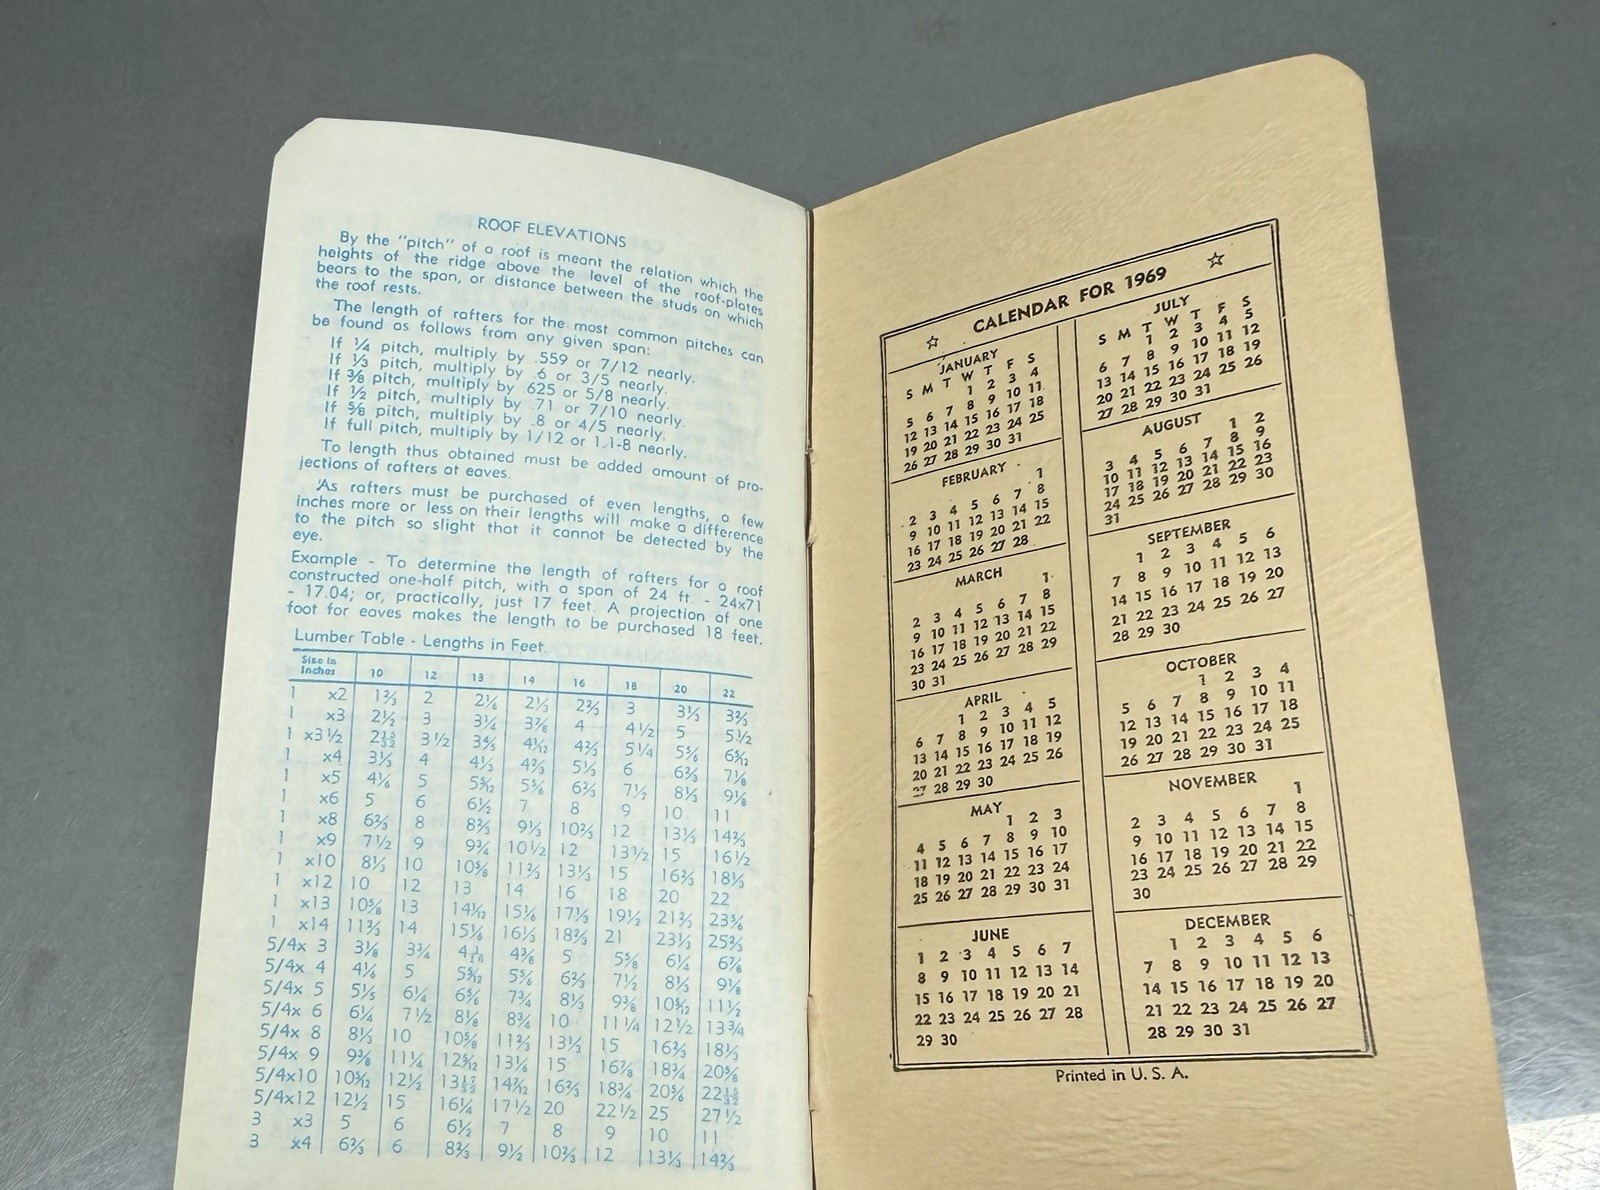 ROOF ELEVATIONS
By the "pitch" of a roof is meant the relation which the
heights of the ridge above the level of the roof-plates
bears to the span, or distance between the studs on which
the roof rests.
The length of rafters for the most common pitches can
be found as follows from any given span:
If ¼ pitch, multiply by .559 or 7/12 nearly.
If ⅓ pitch, multiply by .6 or 3/5 nearly.
If ⅜ pitch, multiply by .625 or 5/8 nearly.
If ½ pitch, multiply by .71 or 7/10 nearly.
If ⅝ pitch, multiply by .8 or 4/5 nearly.
If full pitch, multiply by 1/12 or 1.1-8 nearly.
To length thus obtained must be added amount of pro-
jections of rafters at eaves.
As rafters must be purchased of even lengths, a few
inches more or less on their lengths will make a difference
to the pitch so slight that it cannot be detected by the
eye.
Example - To determine the length of rafters for a roof
constructed one-half pitch, with a span of 24 ft. - 24x71
- 17.04; or, practically, just 17 feet. A projection of one
foot for eaves makes the length to be purchased 18 feet.
Lumber Table - Lengths in Feet.
Size in Inches 10 12 13 14 16 18 20 22
1 x2 1⅔ 2 2⅙ 2⅓ 2⅔ 3 3⅓ 3⅔
1 x3 2½ 3 3¼ 3⅜ 4 4½ 5 5½
1 x3½ 3½ 3⅘ 4 1/12 4⅔ 5¼ 5⅚ 6 5/12
1 x4 3⅓ 4 4⅓ 4⅔ 5⅓ 6 6⅔ 7⅛
1 x5 4⅙ 5 5 5/12 5⅚ 6⅔ 7½ 8⅓ 9⅛
1 x6 5 6 6½ 7 8 9 10 11
1 x8 6⅔ 8 8⅔ 9⅓ 10⅔ 12 13⅓ 14⅔
1 x9 7½ 9 9¾ 10½ 12 13½ 15 16½
1 x10 8⅓ 10 10⅚ 11⅔ 13⅓ 15 16⅔ 18⅓
1 x12 10 12 13 14 16 18 20 22
1 x13 10⅚ 13 14 1/12 15⅙ 17⅓ 19½ 21⅔ 23⅚
1 x14 11⅔ 14 15⅙ 16⅓ 18⅔ 21 23⅓ 25⅔
5/4x 3 3⅛ 3¾ 4 1/16 4⅜ 5 5⅝ 6¼ 6⅞
5/4x 4 4⅙ 5 5 5/12 5⅚ 6⅔ 7½ 8⅓ 9⅛
5/4x 5 5⅕ 6¼ 6⅚ 7¾ 8⅓ 9⅜ 10 5/12 11½
5/4x 6 6¼ 7½ 8⅛ 8¾ 10 11¼ 12½ 13¾
5/4x 8 8⅓ 10 10⅚ 11⅔ 13⅓ 15 16⅔ 18⅓
5/4x 9 9⅜ 11¼ 12 5/12 13⅙ 15 16⅞ 18¾ 20⅝
5/4x10 10 5/12 12½ 14 7/12 16⅔ 18¾ 20⅚
5/4x12 12½ 15 16¼ 17½ 20 22½ 25 27½
3 x3 5 6 6½ 7 8 9 10 11
3 x4 6⅔ 6 8⅔ 9½ 10⅔ 12 13⅓ 14⅔
☆ CALENDAR FOR 1969 ☆
JANUARY
S M T W T F S
1 2 3 4
5 6 7 8 9 10 11
12 13 14 15 16 17 18
19 20 21 22 23 24 25
26 27 28 29 30 31
FEBRUARY
1
2 3 4 5 6 7 8
9 10 11 12 13 14 15
16 17 18 19 20 21 22
23 24 25 26 27 28
MARCH
1
2 3 4 5 6 7 8
9 10 11 12 13 14 15
16 17 18 19 20 21 22
23 24 25 26 27 28 29
30 31
APRIL
1 2 3 4 5
6 7 8 9 10 11 12
13 14 15 16 17 18 19
20 21 22 23 24 25 26
27 28 29 30
MAY
1 2 3
4 5 6 7 8 9 10
11 12 13 14 15 16 17
18 19 20 21 22 23 24
25 26 27 28 29 30 31
JUNE
1 2 3 4 5 6 7
8 9 10 11 12 13 14
15 16 17 18 19 20 21
22 23 24 25 26 27 28
29 30
JULY
S M T W T F S
1 2 3 4 5
6 7 8 9 10 11 12
13 14 15 16 17 18 19
20 21 22 23 24 25 26
27 28 29 30 31
AUGUST
1 2
3 4 5 6 7 8 9
10 11 12 13 14 15 16
17 18 19 20 21 22 23
24 25 26 27 28 29 30
31
SEPTEMBER
1 2 3 4 5 6
7 8 9 10 11 12 13
14 15 16 17 18 19 20
21 22 23 24 25 26 27
28 29 30
OCTOBER
1 2 3 4
5 6 7 8 9 10 11
12 13 14 15 16 17 18
19 20 21 22 23 24 25
26 27 28 29 30 31
NOVEMBER
1
2 3 4 5 6 7 8
9 10 11 12 13 14 15
16 17 18 19 20 21 22
23 24 25 26 27 28 29
30
DECEMBER
1 2 3 4 5 6
7 8 9 10 11 12 13
14 15 16 17 18 19 20
21 22 23 24 25 26 27
28 29 30 31
Printed in U. S. A.